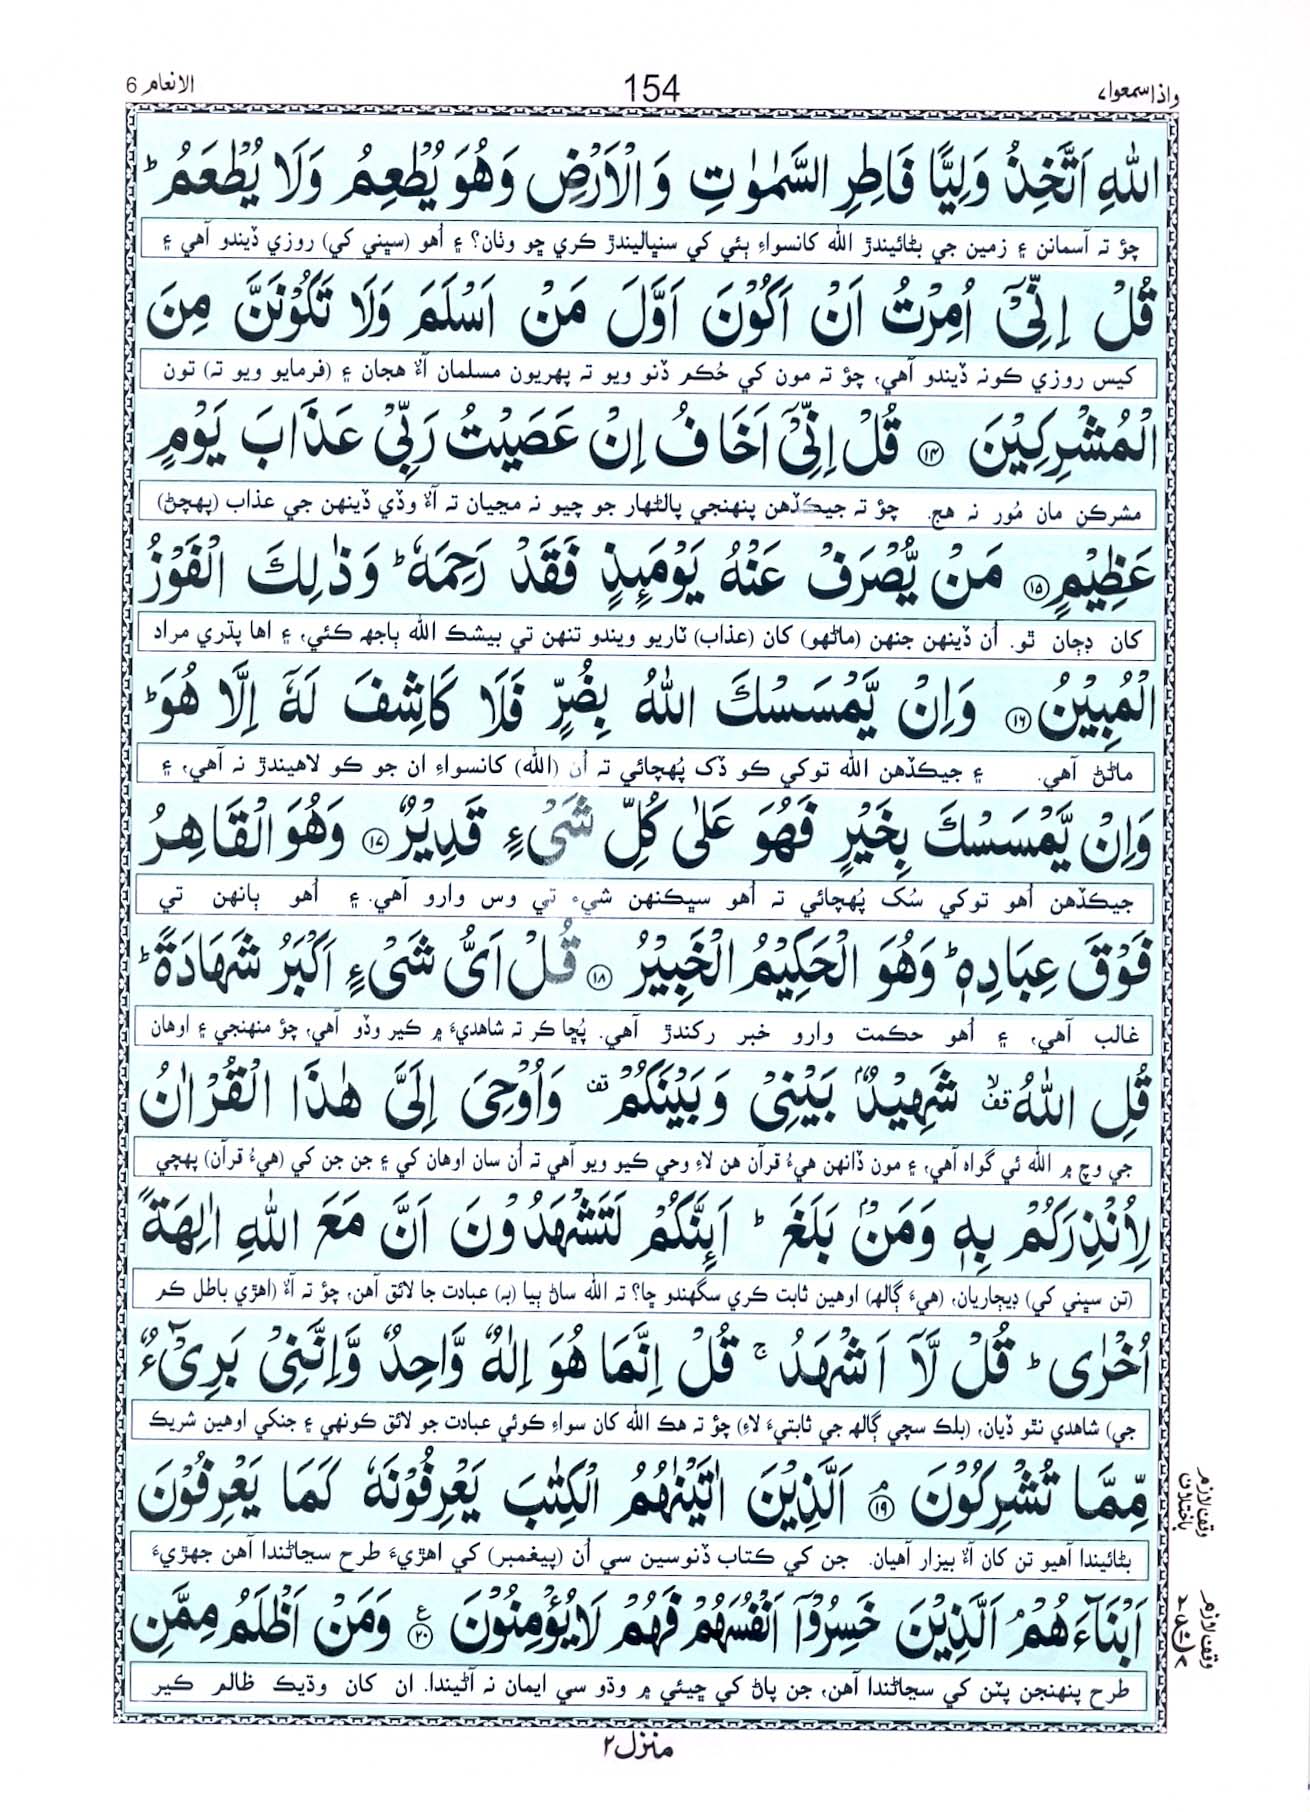 واذاسمعوا۷ 154 الانعام 6
اللّٰهِ اَتَّخِذُ وَلِيًّا فَاطِرِ السَّمٰوٰتِ وَ الْاَرْضِ وَهُوَ يُطْعِمُ وَلَا يُطْعَمُ ؕ
چؤ تہ آسمانن ۽ زمين جي بڻائيندڙ الله کانسواءِ ٻئي کي سنڀاليندڙ ڪري ڇو وٺان؟ ۽ اُهو (سڀني کي) روزي ڏيندو آهي ۽
قُلْ اِنِّيْۤ اُمِرْتُ اَنْ اَكُوْنَ اَوَّلَ مَنْ اَسْلَمَ وَلَا تَكُوْنَنَّ مِنَ
کيس روزي ڪونہ ڏيندو آهي، چؤ تہ مون کي حُڪم ڏنو ويو تہ پهريون مسلمان آءٌ هجان ۽ (فرمايو ويو تہ) تون
الْمُشْرِكِيْنَ ۝۱۴ قُلْ اِنِّيْۤ اَخَافُ اِنْ عَصَيْتُ رَبِّيْ عَذَابَ يَوْمٍ
مشرڪن مان مُور نہ هج. چؤ تہ جيڪڏهن پنهنجي پالڻهار جو چيو نہ مڃيان تہ آءٌ وڏي ڏينهن جي عذاب (پهچڻ)
عَظِيْمٍ ۝۱۵ مَنْ يُّصْرَفْ عَنْهُ يَوْمَىِٕذٍ فَقَدْ رَحِمَهٗ ؕ وَذٰلِكَ الْفَوْزُ
کان ڊڄان ٿو. اُن ڏينهن جنهن (ماڻهو) کان (عذاب) ٽاريو ويندو تنهن تي بيشڪ الله ٻاجھ ڪئي، ۽ اها پڌري مراد
الْمُبِيْنُ ۝۱۶ وَاِنْ يَّمْسَسْكَ اللّٰهُ بِضُرٍّ فَلَا كَاشِفَ لَهٗۤ اِلَّا هُوَ ؕ
ماڻڻ آهي. ۽ جيڪڏهن الله توکي ڪو ڏک پُهچائي تہ اُن (الله) کانسواءِ ان جو ڪو لاهيندڙ نہ آهي، ۽
وَاِنْ يَّمْسَسْكَ بِخَيْرٍ فَهُوَ عَلٰى كُلِّ شَيْءٍ قَدِيْرٌ ۝۱۷ وَهُوَ الْقَاهِرُ
جيڪڏهن اُهو توکي سُک پُهچائي تہ اُهو سڀڪنهن شيء تي وس وارو آهي. ۽ اُهو ٻانهن تي
فَوْقَ عِبَادِهٖ ؕ وَهُوَ الْحَكِيْمُ الْخَبِيْرُ ۝۱۸ قُلْ اَيُّ شَيْءٍ اَكْبَرُ شَهَادَةً ؕ
غالب آهي، ۽ اُهو حڪمت وارو خبر رکندڙ آهي. پُڇا ڪر تہ شاهديءَ ۾ ڪير وڏو آهي، چؤ منهنجي ۽ اوهان
قُلِ اللّٰهُ ۙ قف شَهِيْدٌۢ بَيْنِيْ وَبَيْنَكُمْ قف وَاُوْحِيَ اِلَيَّ هٰذَا الْقُرْاٰنُ
جي وچ ۾ الله ئي گواه آهي، ۽ مون ڏانهن هيءُ قرآن هن لاءِ وحي ڪيو ويو آهي تہ اُن سان اوهان کي ۽ جن جن کي (هيءُ قرآن) پهچي
لِاُنْذِرَكُمْ بِهٖ وَمَنْۢ بَلَغَ ؕ اَىِٕنَّكُمْ لَتَشْهَدُوْنَ اَنَّ مَعَ اللّٰهِ اٰلِهَةً
(تن سڀني کي) ڊيڄاريان، (هيءَ ڳالھ) اوهين ثابت ڪري سگهندو ڇا؟ تہ الله ساڻ ٻيا (بہ) عبادت جا لائق آهن، چؤ تہ آءٌ (اهڙي باطل ڪم
اُخْرٰى ؕ قُلْ لَّاۤ اَشْهَدُ ۚ قُلْ اِنَّمَا هُوَ اِلٰهٌ وَّاحِدٌ وَّاِنَّنِيْ بَرِيْٓءٌ
جي) شاهدي نٿو ڏيان، (بلڪ سچي ڳالھ جي ثابتيءَ لاءِ) چؤ تہ هڪ الله کان سواءِ ڪوئي عبادت جو لائق ڪونهي ۽ جنکي اوهين شريڪ
مِّمَّا تُشْرِكُوْنَ ۝۱۹ۘ اَلَّذِيْنَ اٰتَيْنٰهُمُ الْكِتٰبَ يَعْرِفُوْنَهٗ كَمَا يَعْرِفُوْنَ
بڻائيندا آهيو تن کان آءٌ بيزار آهيان. جن کي ڪتاب ڏنوسين سي اُن (پيغمبر) کي اهڙيءَ طرح سڃاڻندا آهن جهڙيءَ
اَبْنَآءَهُمْ ۘ اَلَّذِيْنَ خَسِرُوْۤا اَنْفُسَهُمْ فَهُمْ لَا يُؤْمِنُوْنَ ۝۲۰ ع وَمَنْ اَظْلَمُ مِمَّنِ
طرح پنهنجن پٽن کي سڃاڻندا آهن، جن پاڻ کي ڇيئي ۾ وڌو سي ايمان نہ آڻيندا. ان کان وڌيڪ ظالم ڪير
وقف لازم
باختلاف
وقف لازم
منزل۲